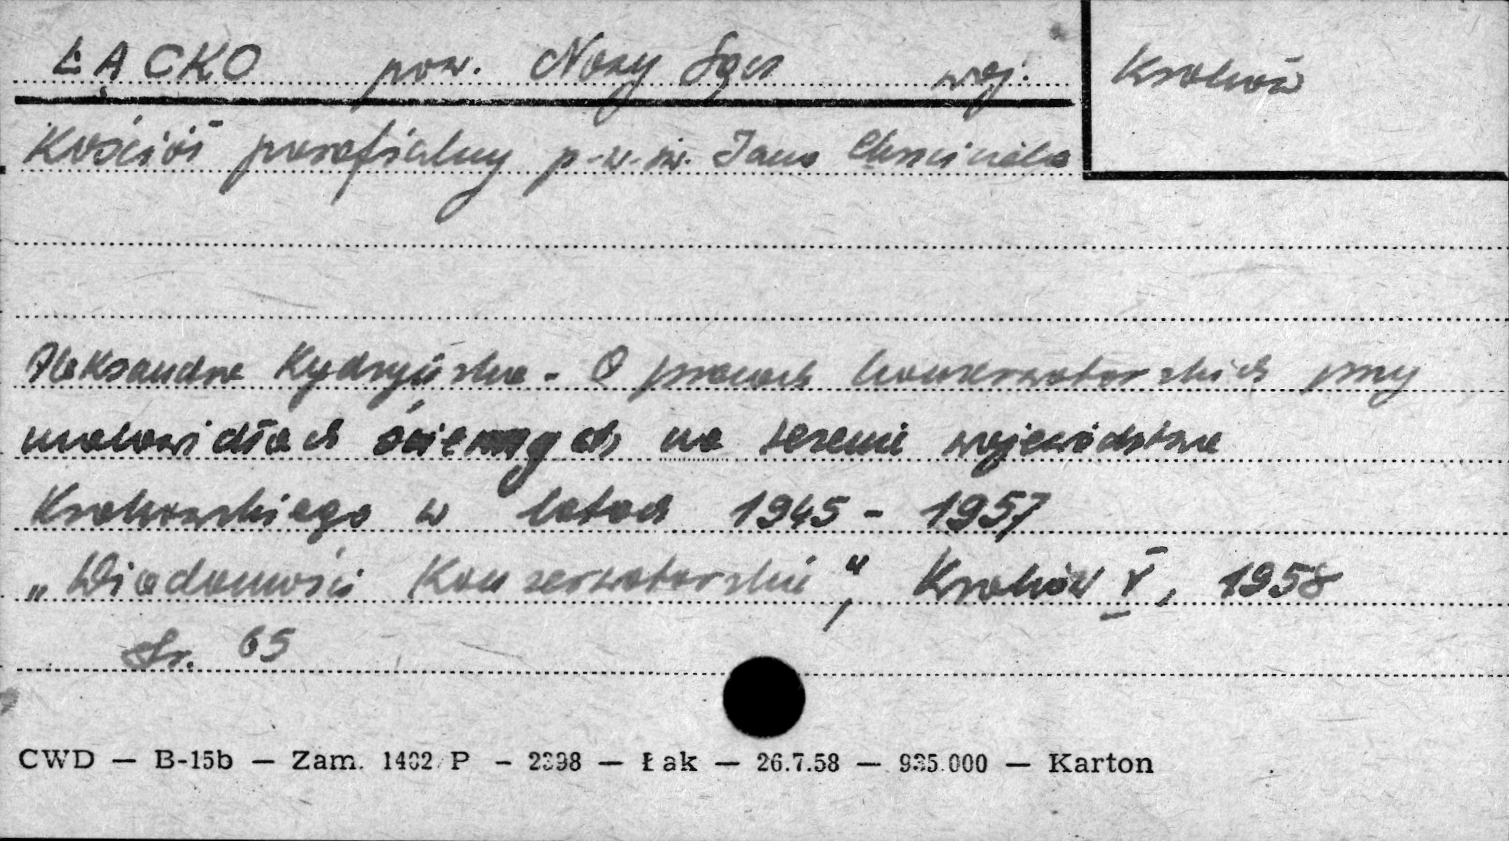 ŁĄCKO pow. Nowy Sącz woj. Kraków
Kościół parafialny p.w. św. Jana Chrzciciela
Aleksandra Kydryńska - O pracach konserwatorskich przy
malowidłach ściennych na terenie województwa
Krakowskiego w latach 1945 - 1957
„Wiadomości Konserwatorskie", Kraków V, 1958
str. 65
CWD — B-15b — Zam. 1402/P — 2398 — Łak — 26.7.58 — 935.000 — Karton